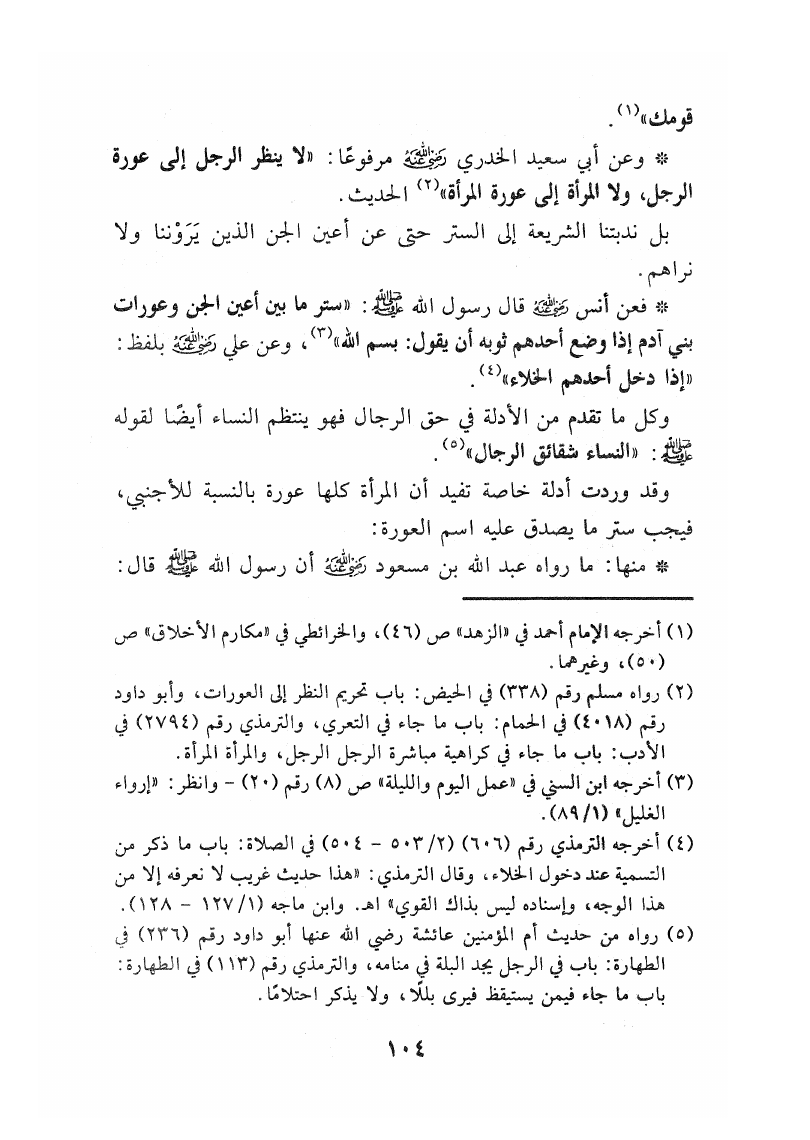 قومك»(١) .
* وعن أبي سعيد الخدري رضي الله عنه مرفوعًا: «لا ينظر الرجل إلى عورة
الرجل، ولا المرأة إلى عورة المرأة»(٢) الحديث .
بل ندبتنا الشريعة إلى الستر حتى عن أعين الجن الذين يَرَوْننا ولا
نراهم .
* فعن أنس رضي الله عنه قال رسول الله ﷺ : «ستر ما بين أعين الجن وعورات
بني آدم إذا وضع أحدهم ثوبه أن يقول: بسم الله»(٣)، وعن علي رضي الله عنه بلفظ :
«إذا دخل أحدهم الخلاء»(٤) .
وكل ما تقدم من الأدلة في حق الرجال فهو ينتظم النساء أيضًا لقوله
ﷺ : «النساء شقائق الرجال»(٥) .
وقد وردت أدلة خاصة تفيد أن المرأة كلها عورة بالنسبة للأجنبي،
فيجب ستر ما يصدق عليه اسم العورة :
* منها : ما رواه عبد الله بن مسعود رضي الله عنه أن رسول الله ﷺ قال :
(١) أخرجه الإمام أحمد في «الزهد» ص (٤٦)، والخرائطي في «مكارم الأخلاق» ص
(٥٠)، وغيرهما .
(٢) رواه مسلم رقم (٣٣٨) في الحيض : باب تحريم النظر إلى العورات، وأبو داود
رقم (٤٠١٨) في الحمام : باب ما جاء في التعري، والترمذي رقم (٢٧٩٤) في
الأدب : باب ما جاء في كراهية مباشرة الرجل الرجل، والمرأة المرأة .
(٣) أخرجه ابن السني في «عمل اليوم والليلة» ص (٨) رقم (٢٠) - وانظر : «إرواء
الغليل» (٨٩/١) .
(٤) أخرجه الترمذي رقم (٦٠٦) (٥٠٣/٢ - ٥٠٤) في الصلاة : باب ما ذكر من
التسمية عند دخول الخلاء، وقال الترمذي : «هذا حديث غريب لا نعرفه إلا من
هذا الوجه، وإسناده ليس بذاك القوي» اهـ. وابن ماجه (١٢٧/١ - ١٢٨) .
(٥) رواه من حديث أم المؤمنين عائشة رضي الله عنها أبو داود رقم (٢٣٦) في
الطهارة : باب في الرجل يجد البلة في منامه، والترمذي رقم (١١٣) في الطهارة :
باب ما جاء فيمن يستيقظ فيرى بللًا، ولا يذكر احتلامًا .
١٠٤